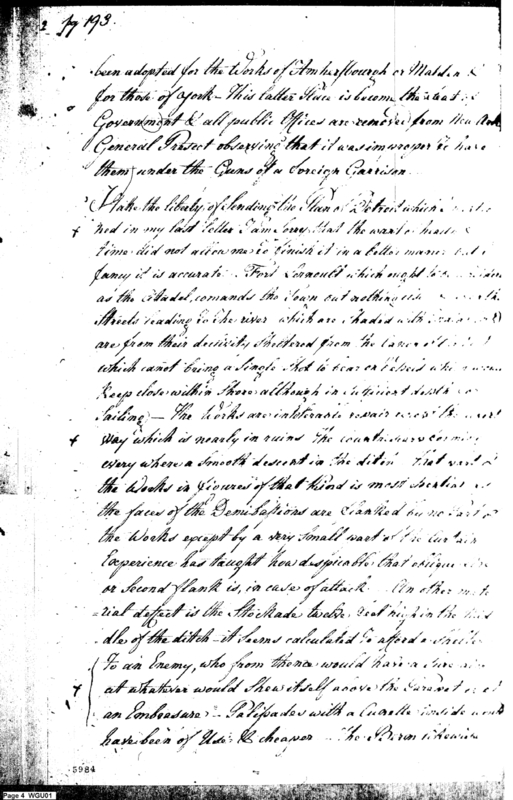 2 pg 193.
been adopted for the Works of Amhersbourgh or Malden &
for those of York – This latter Place is become the seat of
Government & all public Offices are removed from New
General Prescot observing that it was improper to have
them under the Guns of a foreign Garrison
I take the liberty of sending the Plan of Detroit which I
ned in my last letter I am Sorry that the want of
time did not allow me to finish it in a better manner but I
fancy it is accurate – Fort Lernoult which ought to be
as the Citadel, comands the Town but nothing else
Streets leading to the river which are
are from their declivity Sheltered from the Cannon
which canot bring a Single Shot to bear on Vessels who
Keep close within Shore although in sufficient depth for
Sailing – The Works are in tolerable repair except the
way which is nearly in ruins The counterscarp forming
every where a Smooth descent in the ditch That part of
the Works in figures of that Kind is most
the faces of the Demibastions are flanked by no Part of
the Works except by a very Small part of the Curtain
Experience has taught how despicable that oblique
or Second flank is, in case of attack – An other mate
=rial defect is the Stockade twelve feet high in the mid
dle of the ditch – it Seems calculated to afford a Shelter
To an Enemy, who from thence would have a Sure
at whatever would Shew itself above the Parapet or at
an Embrasure – Palissades with a Cunette inside would
have been of Use & cheaper – The Berm likewise
5984
Page 4 WGU01